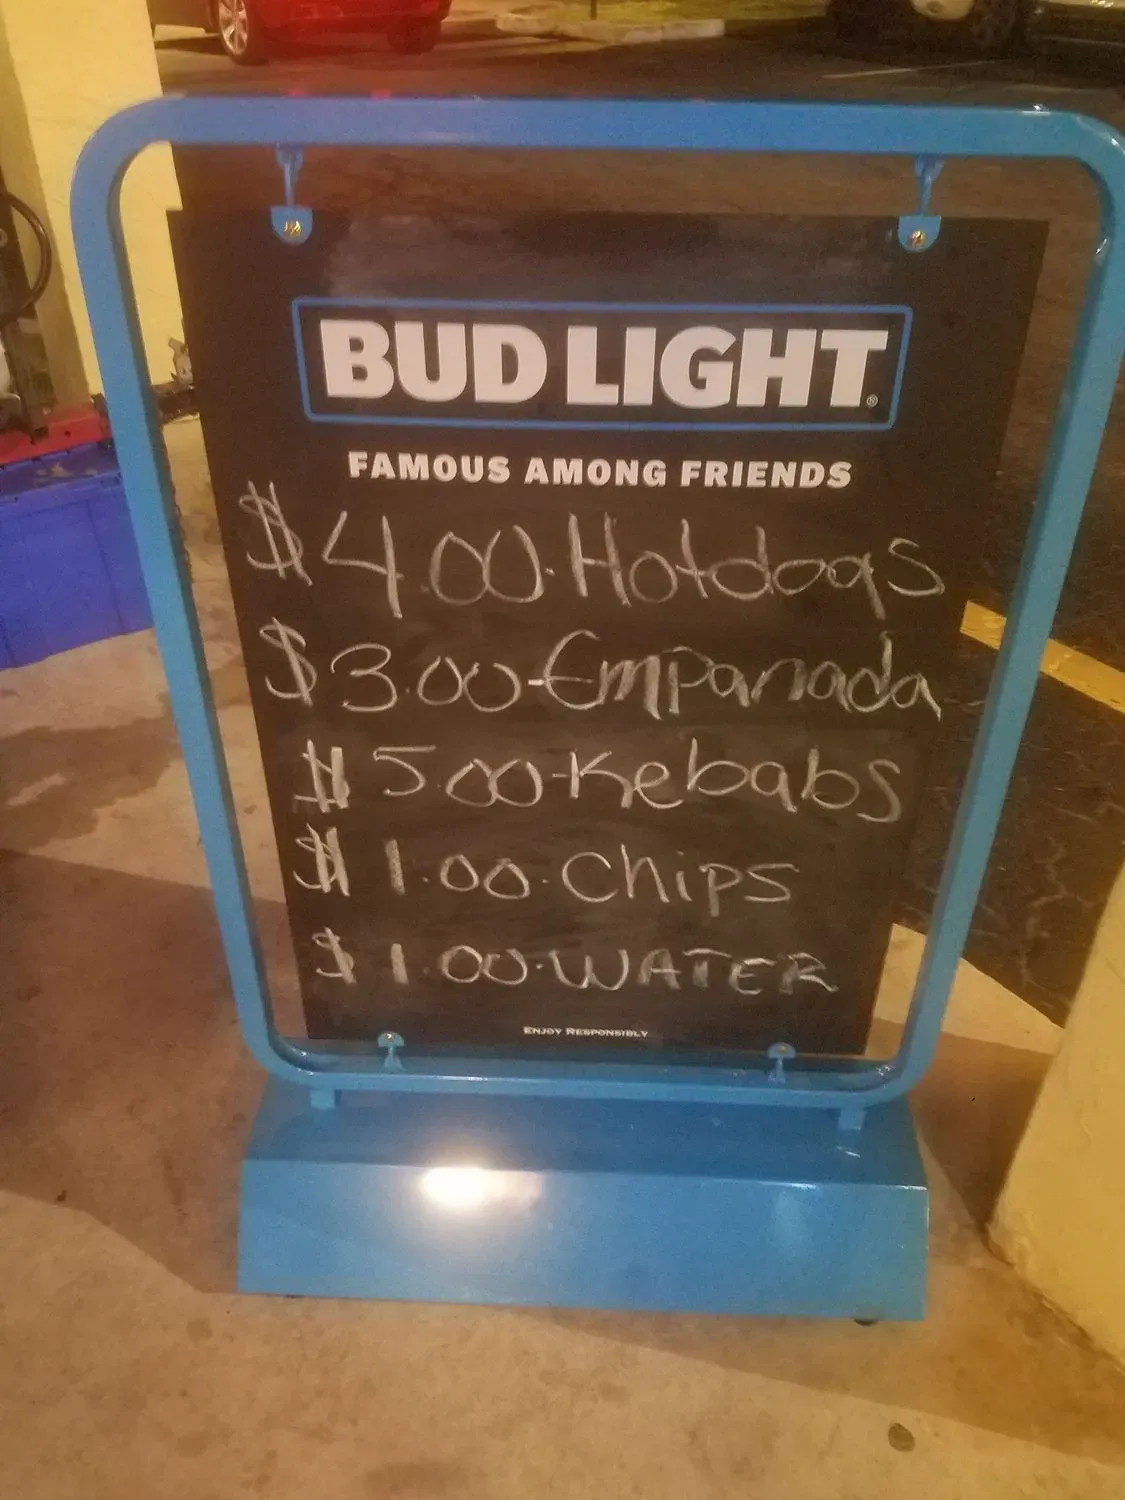 BUD LIGHT®
FAMOUS AMONG FRIENDS
$4.00·Hotdogs
$3.00-Empanada
$5.00-Kebabs
$1.00·Chips
$1.00·WATER
ENJOY RESPONSIBLY